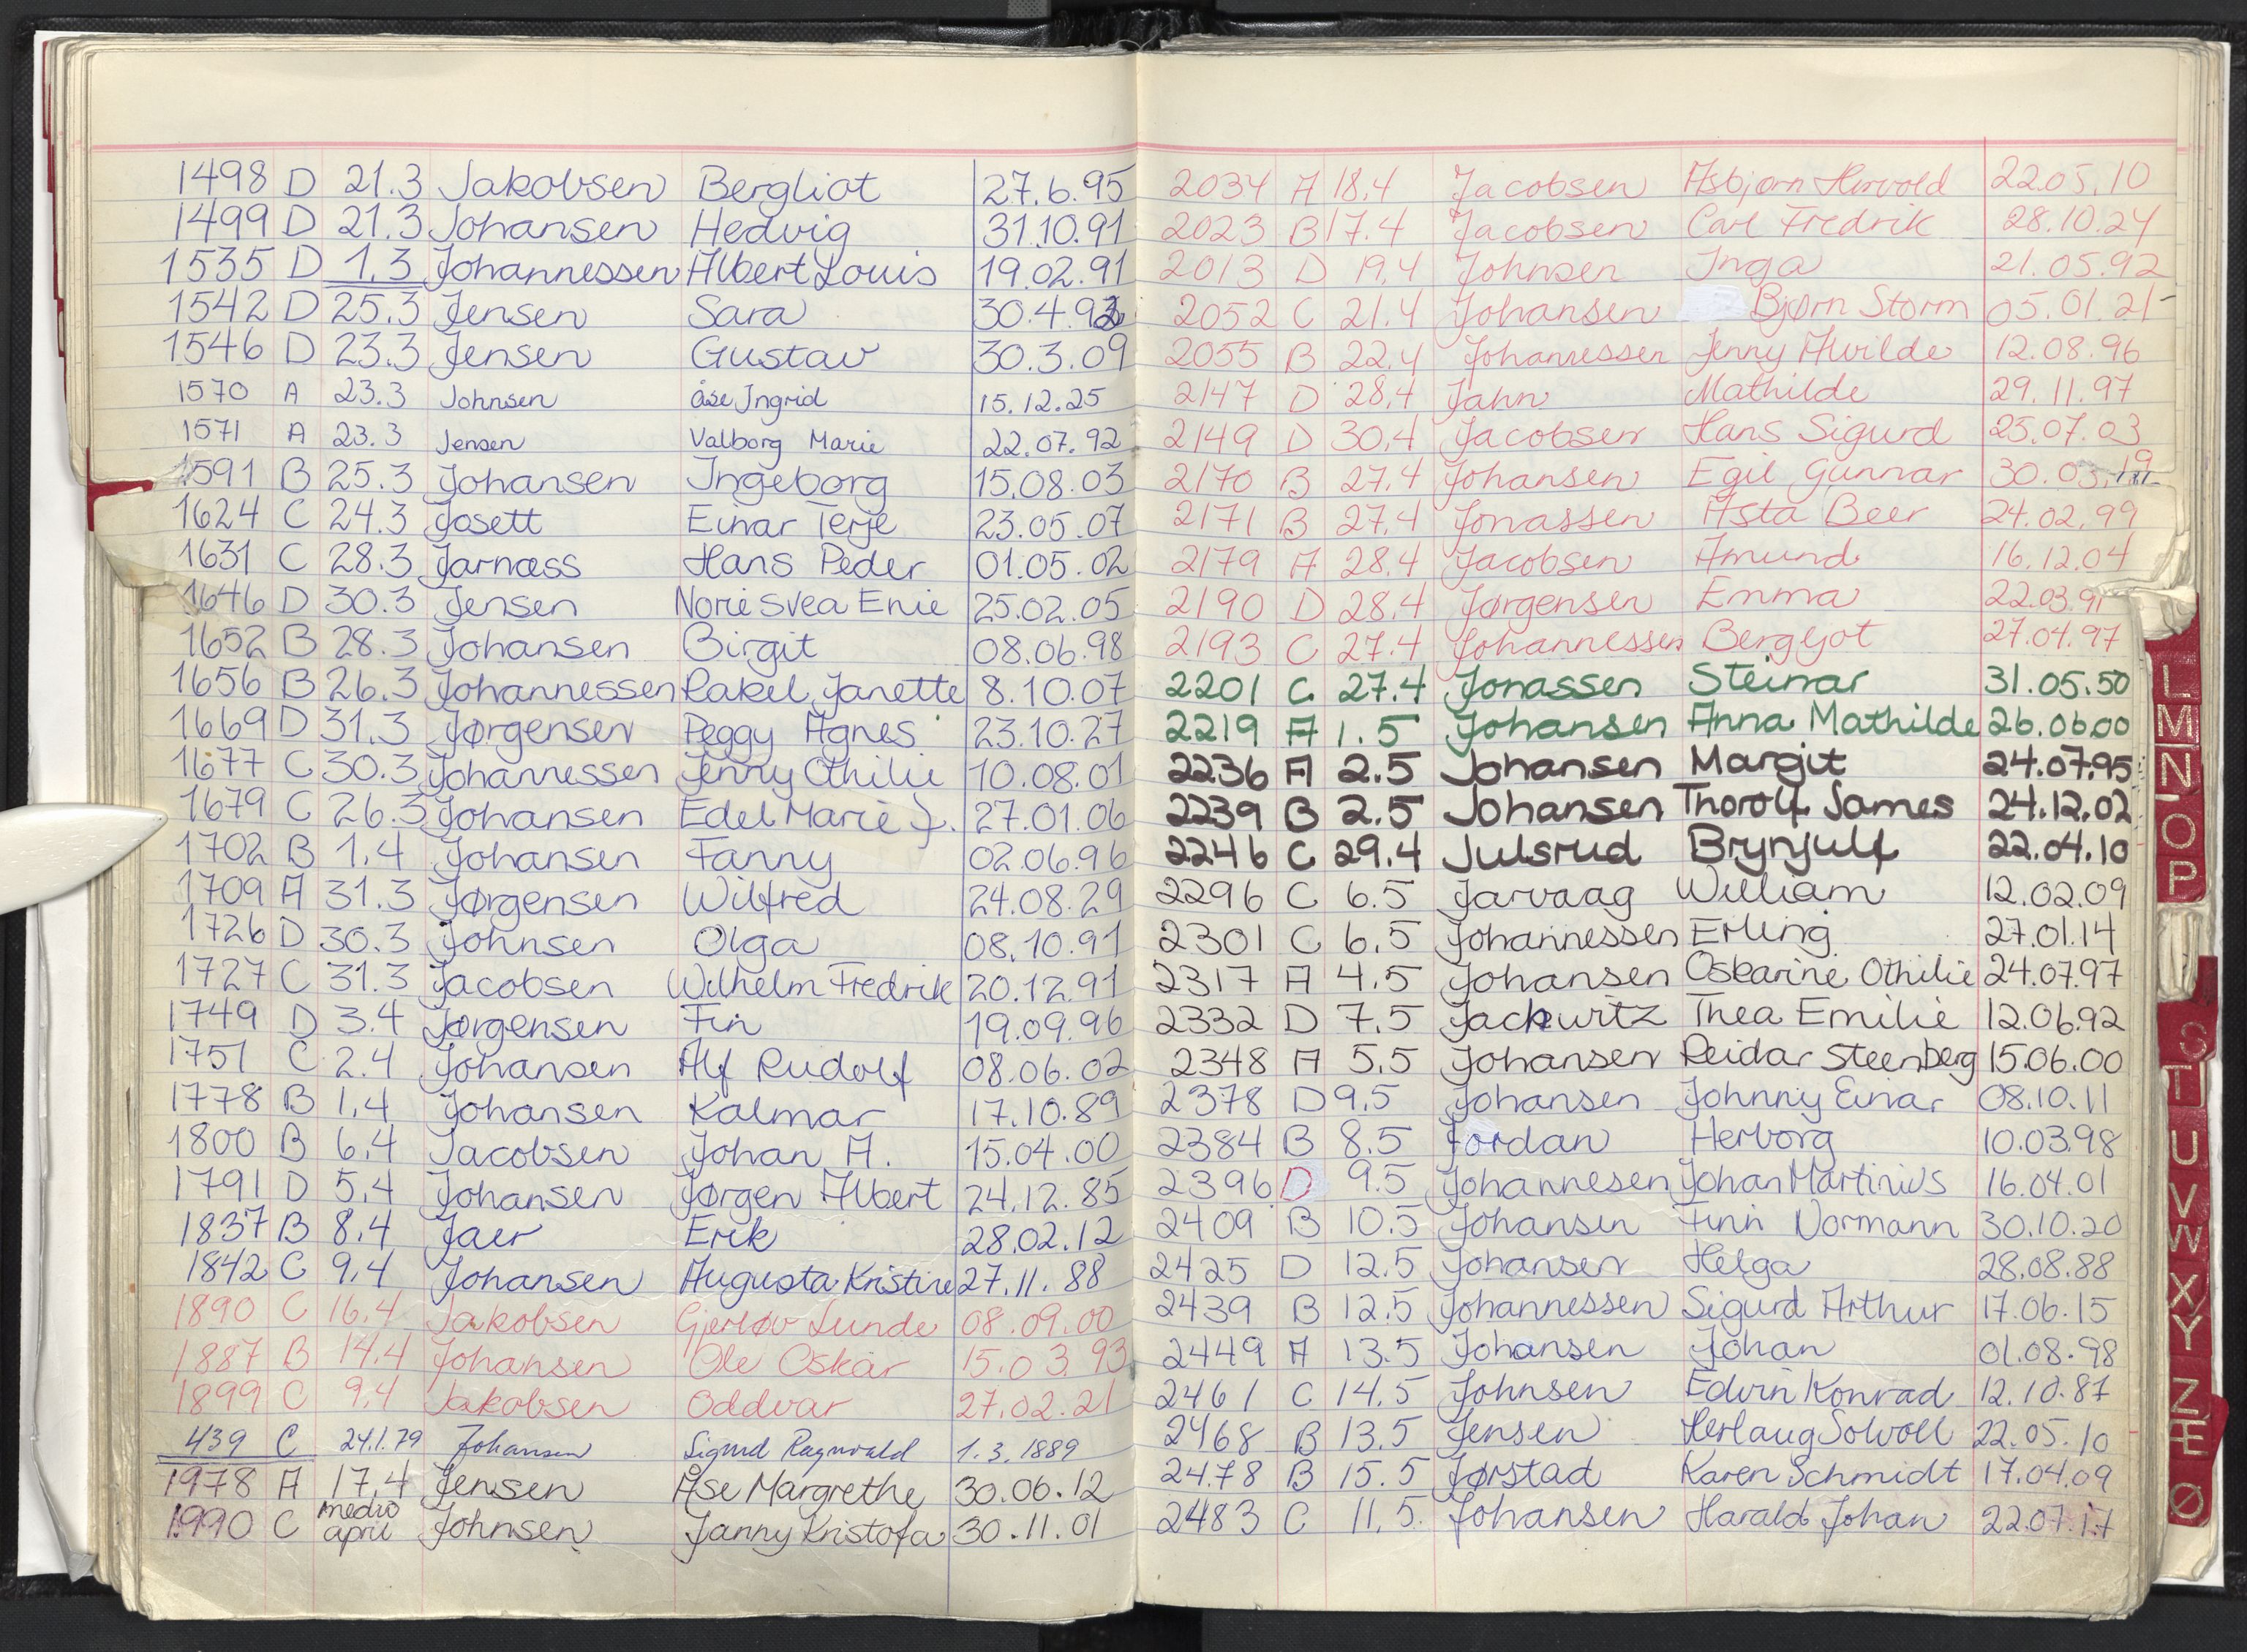 1498 D 21.3 Jakobsen Bergliot 27.6.95
1499 D 21.3 Johansen Hedvig 31.10.91
1535 D 1.3 Johannessen Albert Louis 19.02.91
1542 D 25.3 Jensen Sara 30.4.92
1546 D 23.3 Jensen Gustav 30.3.09
1570 A 23.3 Johnsen åse Ingrid 15.12.25
1571 A 23.3 Jensen Valborg Marie 22.07.92
1591 B 25.3 Johansen Ingeborg 15.08.03
1624 C 24.3 Josett Einar Terje 23.05.07
1631 C 28.3 Jarnæss Hans Peder 01.05.02
1646 D 30.3 Jensen Norie Svea Enie 25.02.05
1652 B 28.3 Johansen Birgit 08.06.98
1656 B 26.3 Johannessen Rakel Janette 8.10.07
1669 D 31.3 Jørgensen Peggy Agnes 23.10.27
1677 C 30.3 Johannessen Jenny Othilie 10.08.01
1679 C 26.3 Johansen Edel Marie J. 27.01.06
1702 B 1.4 Johansen Fanny 02.06.96
1709 A 31.3 Jørgensen Wilfred 24.08.29
1726 D 30.3 Johnsen Olga 08.10.91
1727 C 31.3 Jacobsen Wilhelm Fredrik 20.12.91
1749 D 3.4 Jørgensen Fin 19.09.96
1751 C 2.4 Johansen Alf Rudolf 08.06.02
1778 B 1.4 Johansen Kalmar 17.10.89
1800 B 6.4 Jacobsen Johan A. 15.04.00
1791 D 5.4 Johansen Jørgen Albert 24.12.85
1837 B 8.4 Jaer Erik 28.02.12
1842 C 9.4 Johansen Augusta Kristine 27.11.88
1890 C 16.4 Jakobsen Gjerløv Lunde 08.09.00
1887 B 14.4 Johansen Ole Oskar 15.03.93
1899 C 9.4 Jakobsen Oddvar 27.02.21
439 C 24.1.79 Johansen Sigurd Ragnvald 1.3.1889
1978 A 17.4 Jensen Åse Margrethe 30.06.12
1990 C medio april Johnsen Janny Kristofa 30.11.01
2034 A 18.4 Jacobsen Asbjørn Harvold 22.05.10
2023 B 17.4 Jacobsen Carl Fredrik 28.10.24
2013 D 19.4 Johnsen Inga 21.05.92
2052 C 21.4 Johansen Bjørn Storm 05.01.21
2055 B 22.4 Johannessen Jenny Alvilde 12.08.96
2147 D 28.4 Jahn Mathilde 29.11.97
2149 D 30.4 Jacobsen Hans Sigurd 25.07.03
2170 B 27.4 Johansen Egil Gunnar 30.03.19
2171 B 27.4 Jonassen Asta Beer 24.02.99
2179 A 28.4 Jacobsen Amund 16.12.04
2190 D 28.4 Jørgensen Emma 22.03.91
2193 C 27.4 Johannessen Bergljot 27.04.97
2201 C 27.4 Jonassen Steinar 31.05.50
2219 A 1.5 Johansen Anna Mathilde 26.06.00
2236 A 2.5 Johansen Margit 24.07.95
2239 B 2.5 Johansen Thorolf James 24.12.02
2246 C 29.4 Julsrud Brynjulf 22.04.10
2296 C 6.5 Jarvaag William 12.02.09
2301 C 6.5 Johannessen Erling 27.01.14
2317 A 4.5 Johansen Oskarine Othilie 24.07.97
2332 D 7.5 Jackwitz Thea Emilie 12.06.92
2348 A 5.5 Johansen Reidar Steenberg 15.06.00
2378 D 9.5 Johansen Johnny Einar 08.10.11
2384 B 8.5 Jordan Herborg 10.03.98
2396 D 9.5 Johannesen Johan Martinius 16.04.01
2409 B 10.5 Johansen Finn Normann 30.10.20
2425 D 12.5 Johansen Helga 28.08.88
2439 B 12.5 Johannessen Sigurd Arthur 17.06.15
2449 A 13.5 Johansen Johan 01.08.98
2461 C 14.5 Johnsen Edvin Konrad 12.10.87
2468 B 13.5 Jensen Herlaug Solvoll 22.05.10
2478 B 15.5 Jørstad Karen Schmidt 17.04.09
2483 C 11.5. Johansen Harald Johan 22.07.17
L
M
N
O
P
S
T
U
V
W
X
Y
Z
Æ
Ø